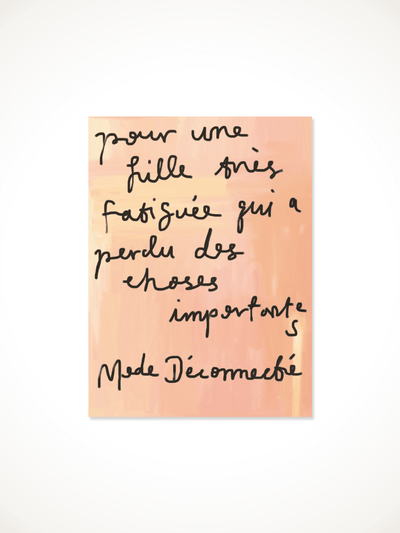 pour une
fille très
fatiguée qui a
perdu des
choses
importante
s
Mode Déconnecté